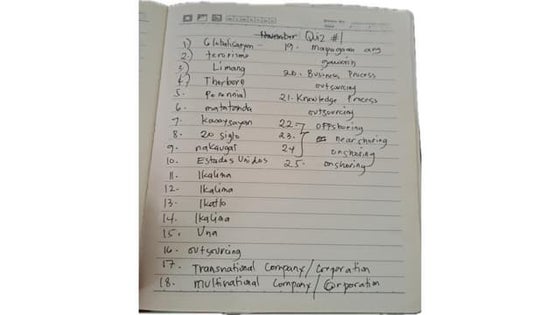 November Quiz #1
1) Globalisasyon
2) terorismo
3) Limang
4) Therborn
5. Perennial
6. matatanda
7. kasaysayan
8. 20 siglo
9. nakaugat
10. Estados Unidos
11. Ikalima
12. Ikalima
13. Ikatlo
14. Ikalima
15. Una
16. outsourcing
17. Transnational Company/Corporation
18. multinational Company/Corporation
19. mapagaan ang
gawain
20. Business Process
outsourcing
21. Knowledge Process
outsourcing
22. offshoring
23. nearshoring
24 onshoring
25. onshoring